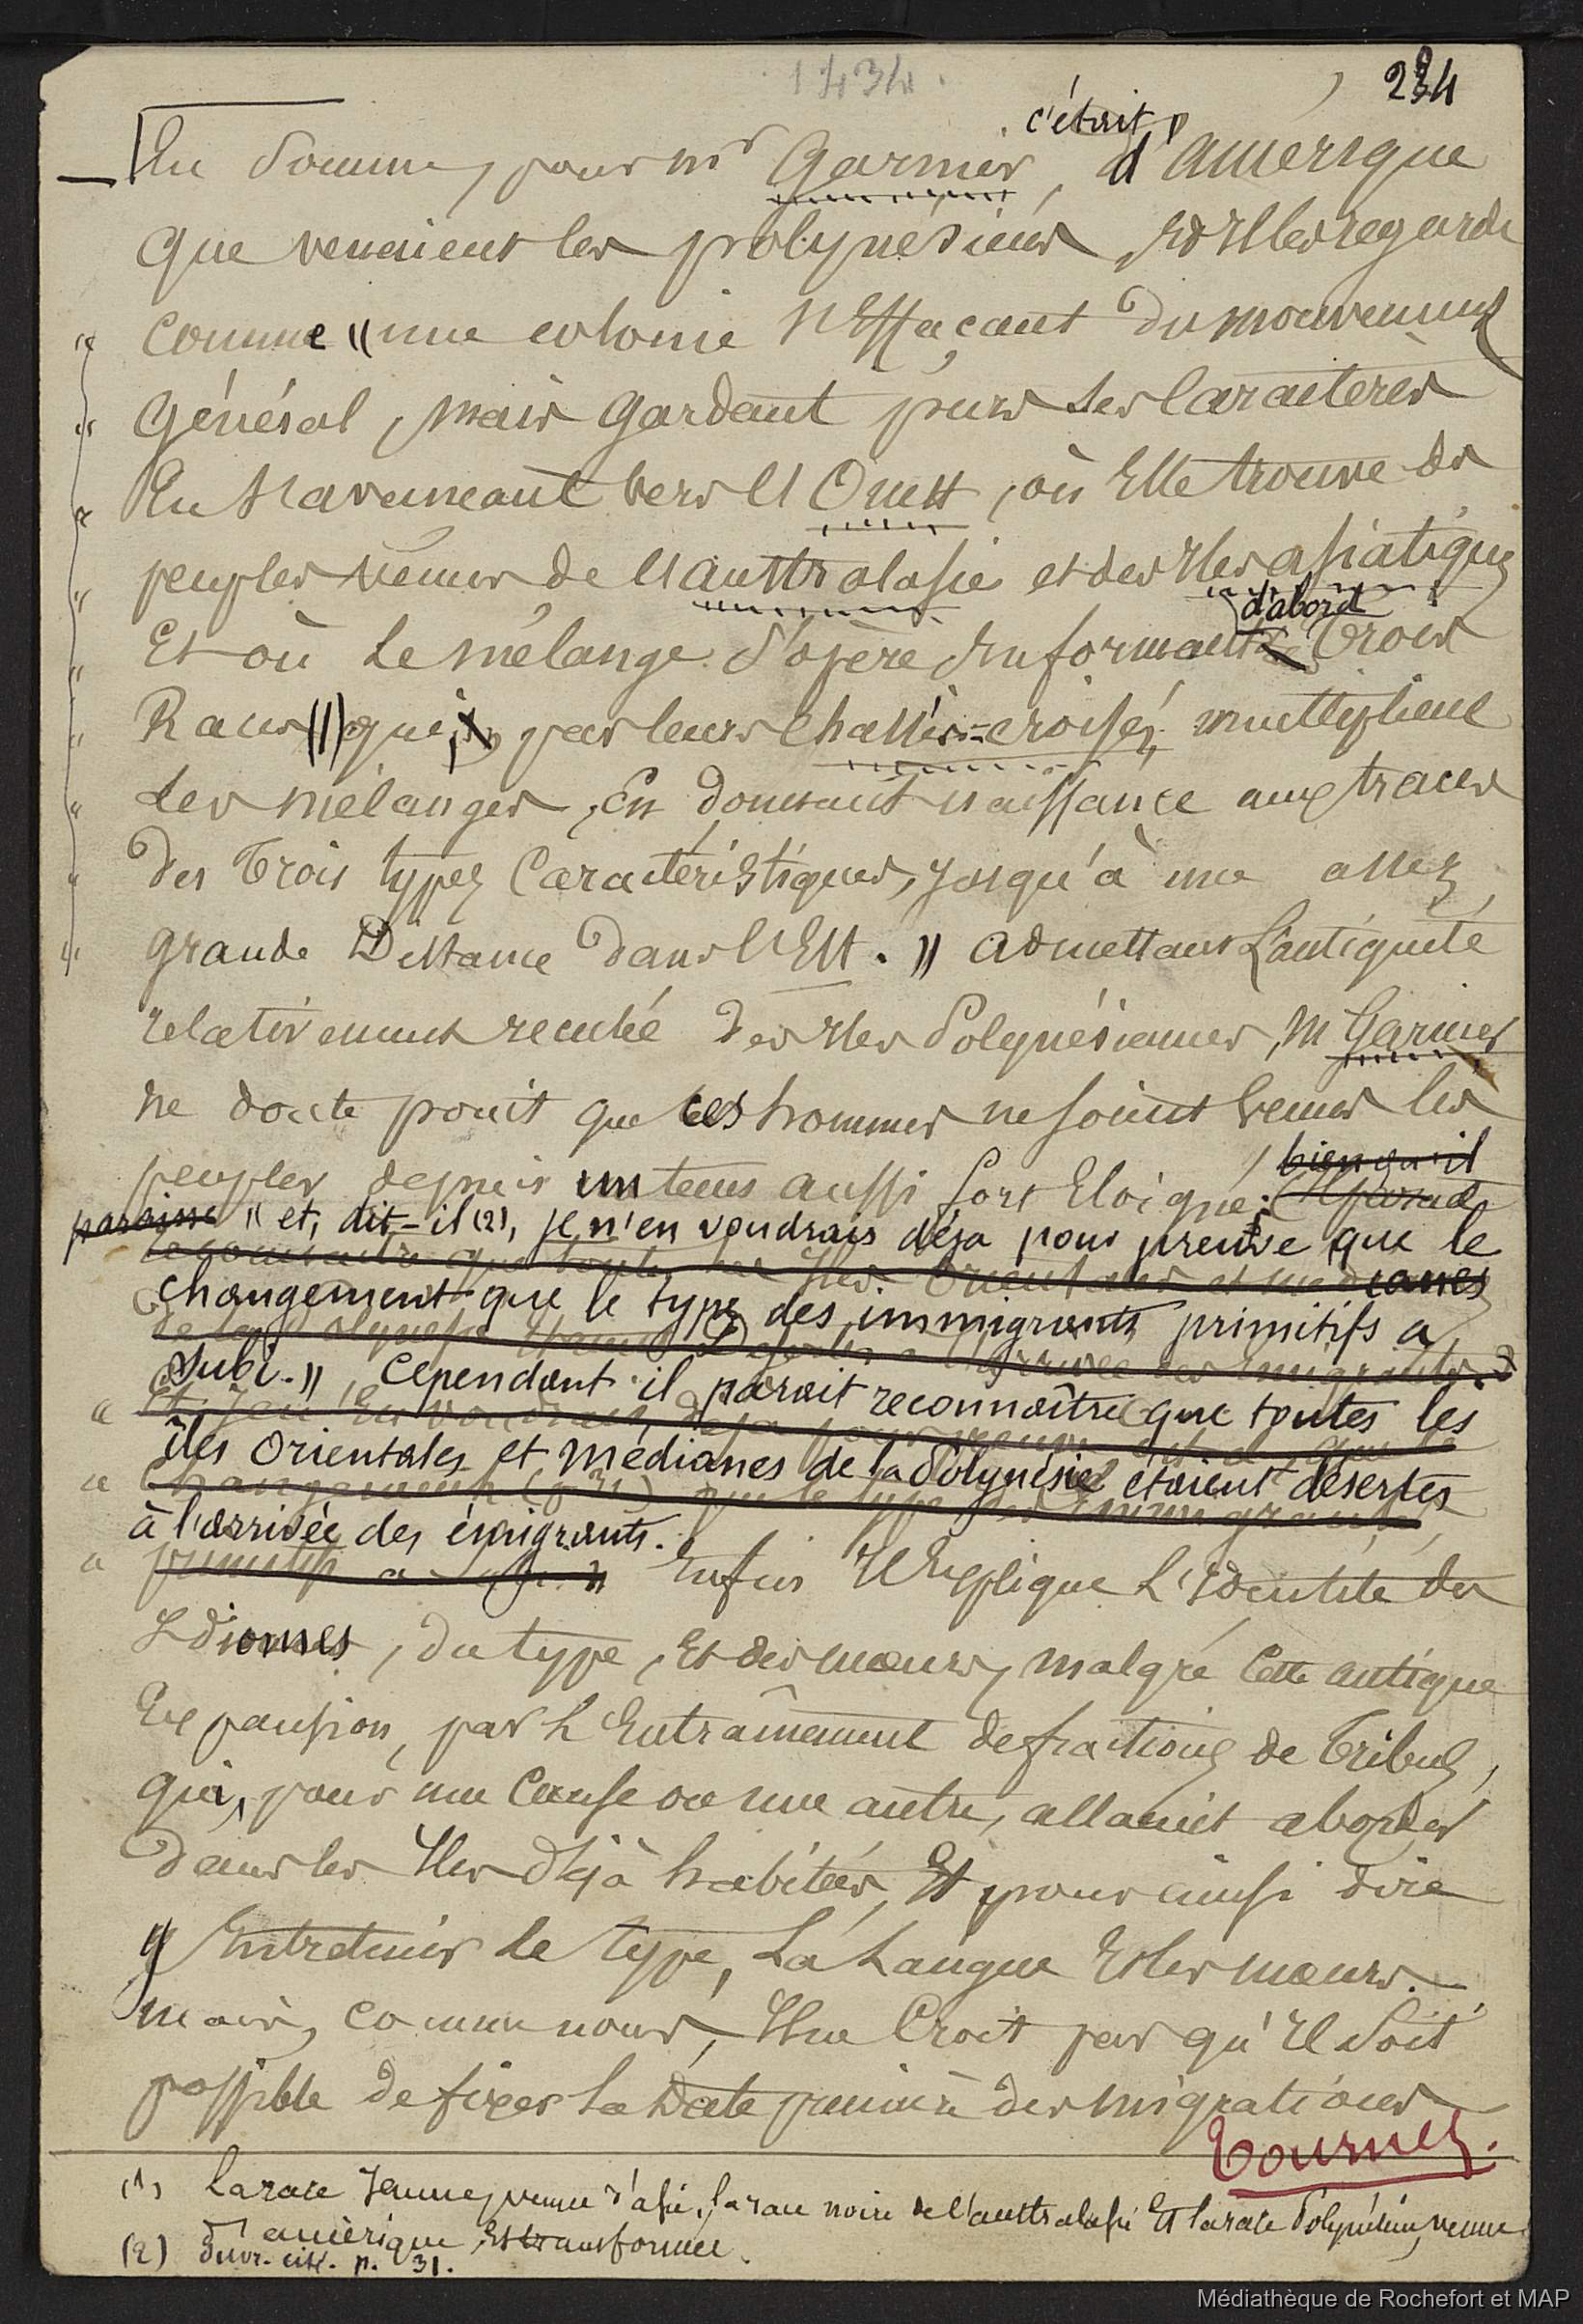 1434.
234
c'était
En Somme, pour mr Garnier, d'amérique
que venaient les polynésiens, Et Il les regarde
comme "une colonie s'Effaçant du mouvement
général, mais gardant purs ses Caractères
En s'avançant vers l'Ouest, où Elle trouve des
peuples venus de l'australasie et des Iles asiatiques
d'abord
Et où le mélange s'opère En formant trois
Races (1) qui, par leurs chassés-croisés, multiplient
les mélanges, En donnant naissance aux traces
des trois types Caractéristiques, Jusqu'à une assez
grande Distance dans l'Est." admettant L'antiquité
relativement reculée des Iles Polynésiennes, M Garnier
ne doute point que ces hommes ne soient venus les
peupler depuis un tems aussi fort Eloigné; Il parait
bien qu'il
paraisse "et, dit-il (2), je n'en voudrais déja pour preuve que le
reconnaitre que toutes les Iles Orientales et médianes
changement que le type des immigrants primitifs a
de la Polynésie étaient Désertes à l'arrivée des Emigrants.
subi.", Cependant il parait reconnaître que toutes les
Et Je n'En voudrais déja pour preuve que le
îles Orientales et médianes de la Polynésie étaient désertes
changement (p 31) que le type des Immigrants
à l'arrivée des émigrants.
primitifs a subi." Enfin Il Explique L'Identité des
Idiomes, du type, Et des mœurs, malgré Cette antique
Expansion, par L'Entraînement de fractions de Tribus,
qui, pour une Cause ou une autre, allaient aborder
dans les Iles déjà habitées, Et pour ainsi dire
y Entretenir le type, La Langue Et les mœurs.
mais, comme nous, Il ne Croit pas qu'Il soit
possible de fixer la Date première des migrations
Tournez.
(1) La race Jaune, venue d'asie, la race noire de l'australasie Et la race Polynésienne, venue
d'amérique, Et transformée.
(2) Ouvr. cit. p. 31.
Médiathèque de Rochefort et MAP